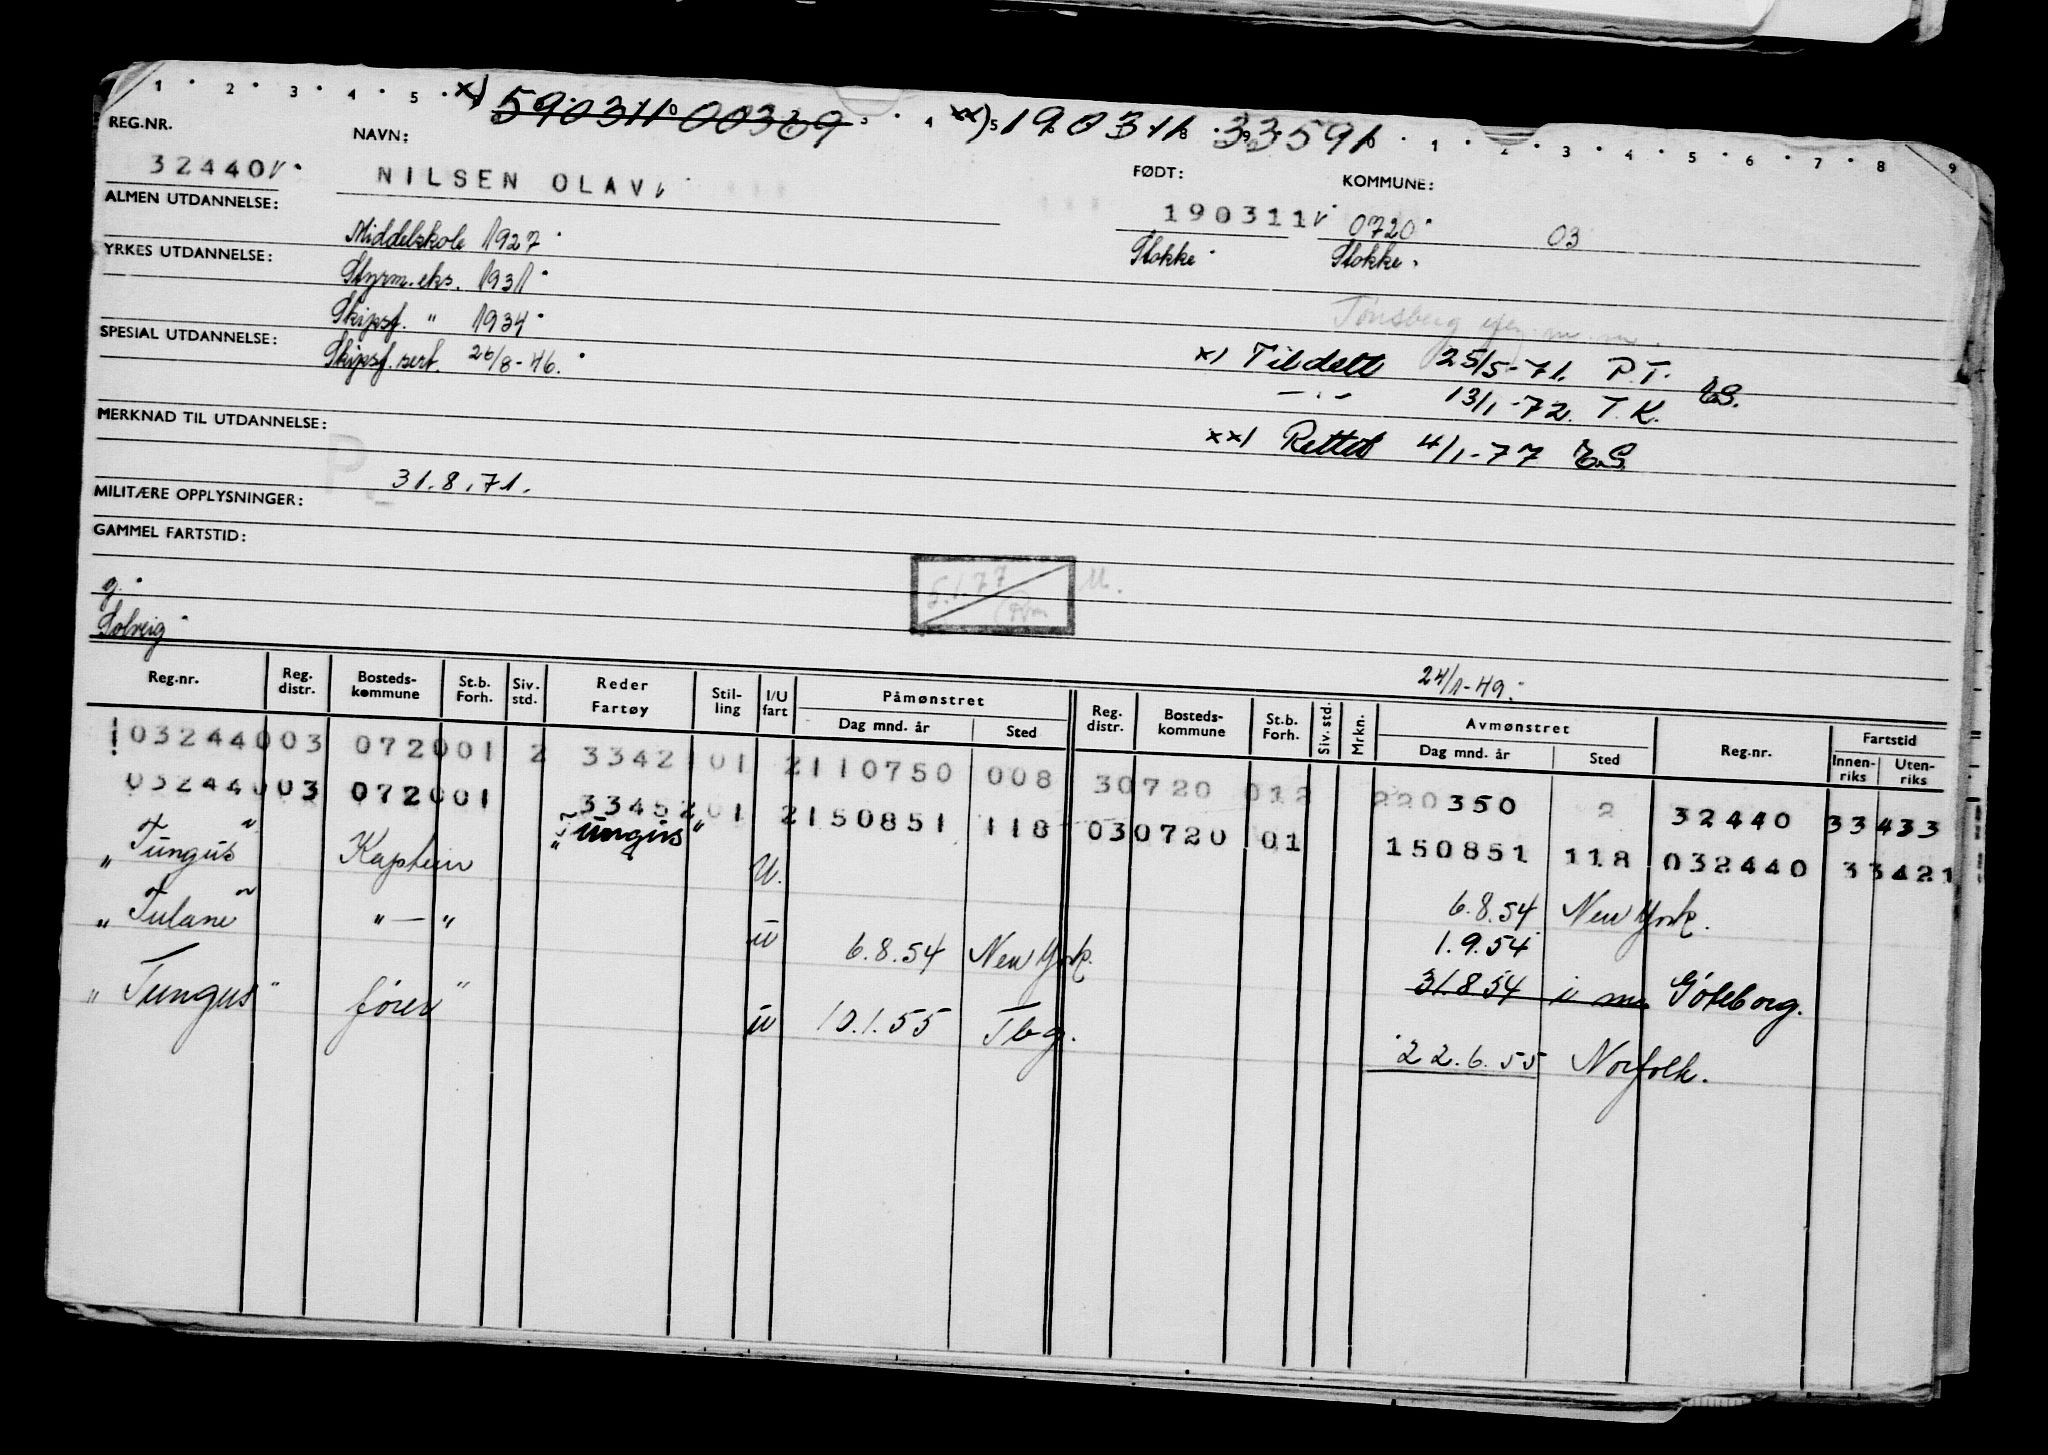 1 2 3 4 5 x) 590311 00369 xx) 190311 33591 1 2 3 4 5 6 7 8 9
REG.NR. NAVN: FØDT: KOMMUNE:
32440 NILSEN OLAV 190311 0720 03
ALMEN UTDANNELSE: Middelskole 1927 Stokke Stokke
YRKES UTDANNELSE: Styrm.eks. 1931
Skipsf. " 1934 Tønsberg
SPESIAL UTDANNELSE: Skipsf. sert. 26/8-46. x) Tildelt 25/5-71. P.T.
-"- 13/1-72. T.K. E.S.
MERKNAD TIL UTDANNELSE: xx) Rettet 4/1-77 E.S.
31.8.71.
MILITÆRE OPPLYSNINGER:
GAMMEL FARTSTID:
5.1.77 M.
g.
Solveig
24/1-49.
Reg.nr. Reg. distr. Bosteds-kommune St.b. Forh. Siv. std. Reder Fartøy Stil-ling I/U fart Påmønstret Dag mnd. år Sted Reg. distr. Bosteds-kommune St.b. Forh. Siv. std. Mrkn. Avmønstret Dag mnd. år Sted Reg.nr. Fartstid Innen-riks Uten-riks
032440 03 0720 01 2 3342 01 2 110750 008 3 0720 012 220350 2 32440 33433
032440 03 0720 01 33452 01 2 150851 118 03 0720 01 150851 118 032440 33421
"Tungus" Kaptein "Tungus" U. 6.8.54 New York.
"Tulane" " — " U 6.8.54 New York. 1.9.54
31.8.54 Göteborg.
"Tungus" fører " U 10.1.55 Tbg. 22.6.55 Norfolk.